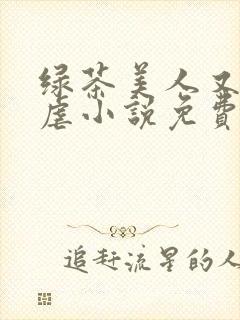 绿茶美人又
虐小説免費
追赶流星的人